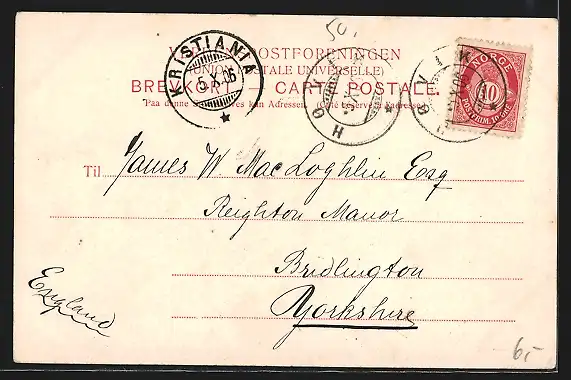 50,
POSTFORENINGEN
(UNION POSTALE UNIVERSELLE)
BREVKORT CARTE POSTALE.
Paa denne Adressen. (Côté réservé à l'adresse)
KRISTIANIA
5.X.06
HØVIK
HØVIK
NORGE
10
POSTFRIM. 10 ØRE
Til James W. MacLoghlin Esq
Reighton Manor
Bridlington
Yorkshire
England
6,-